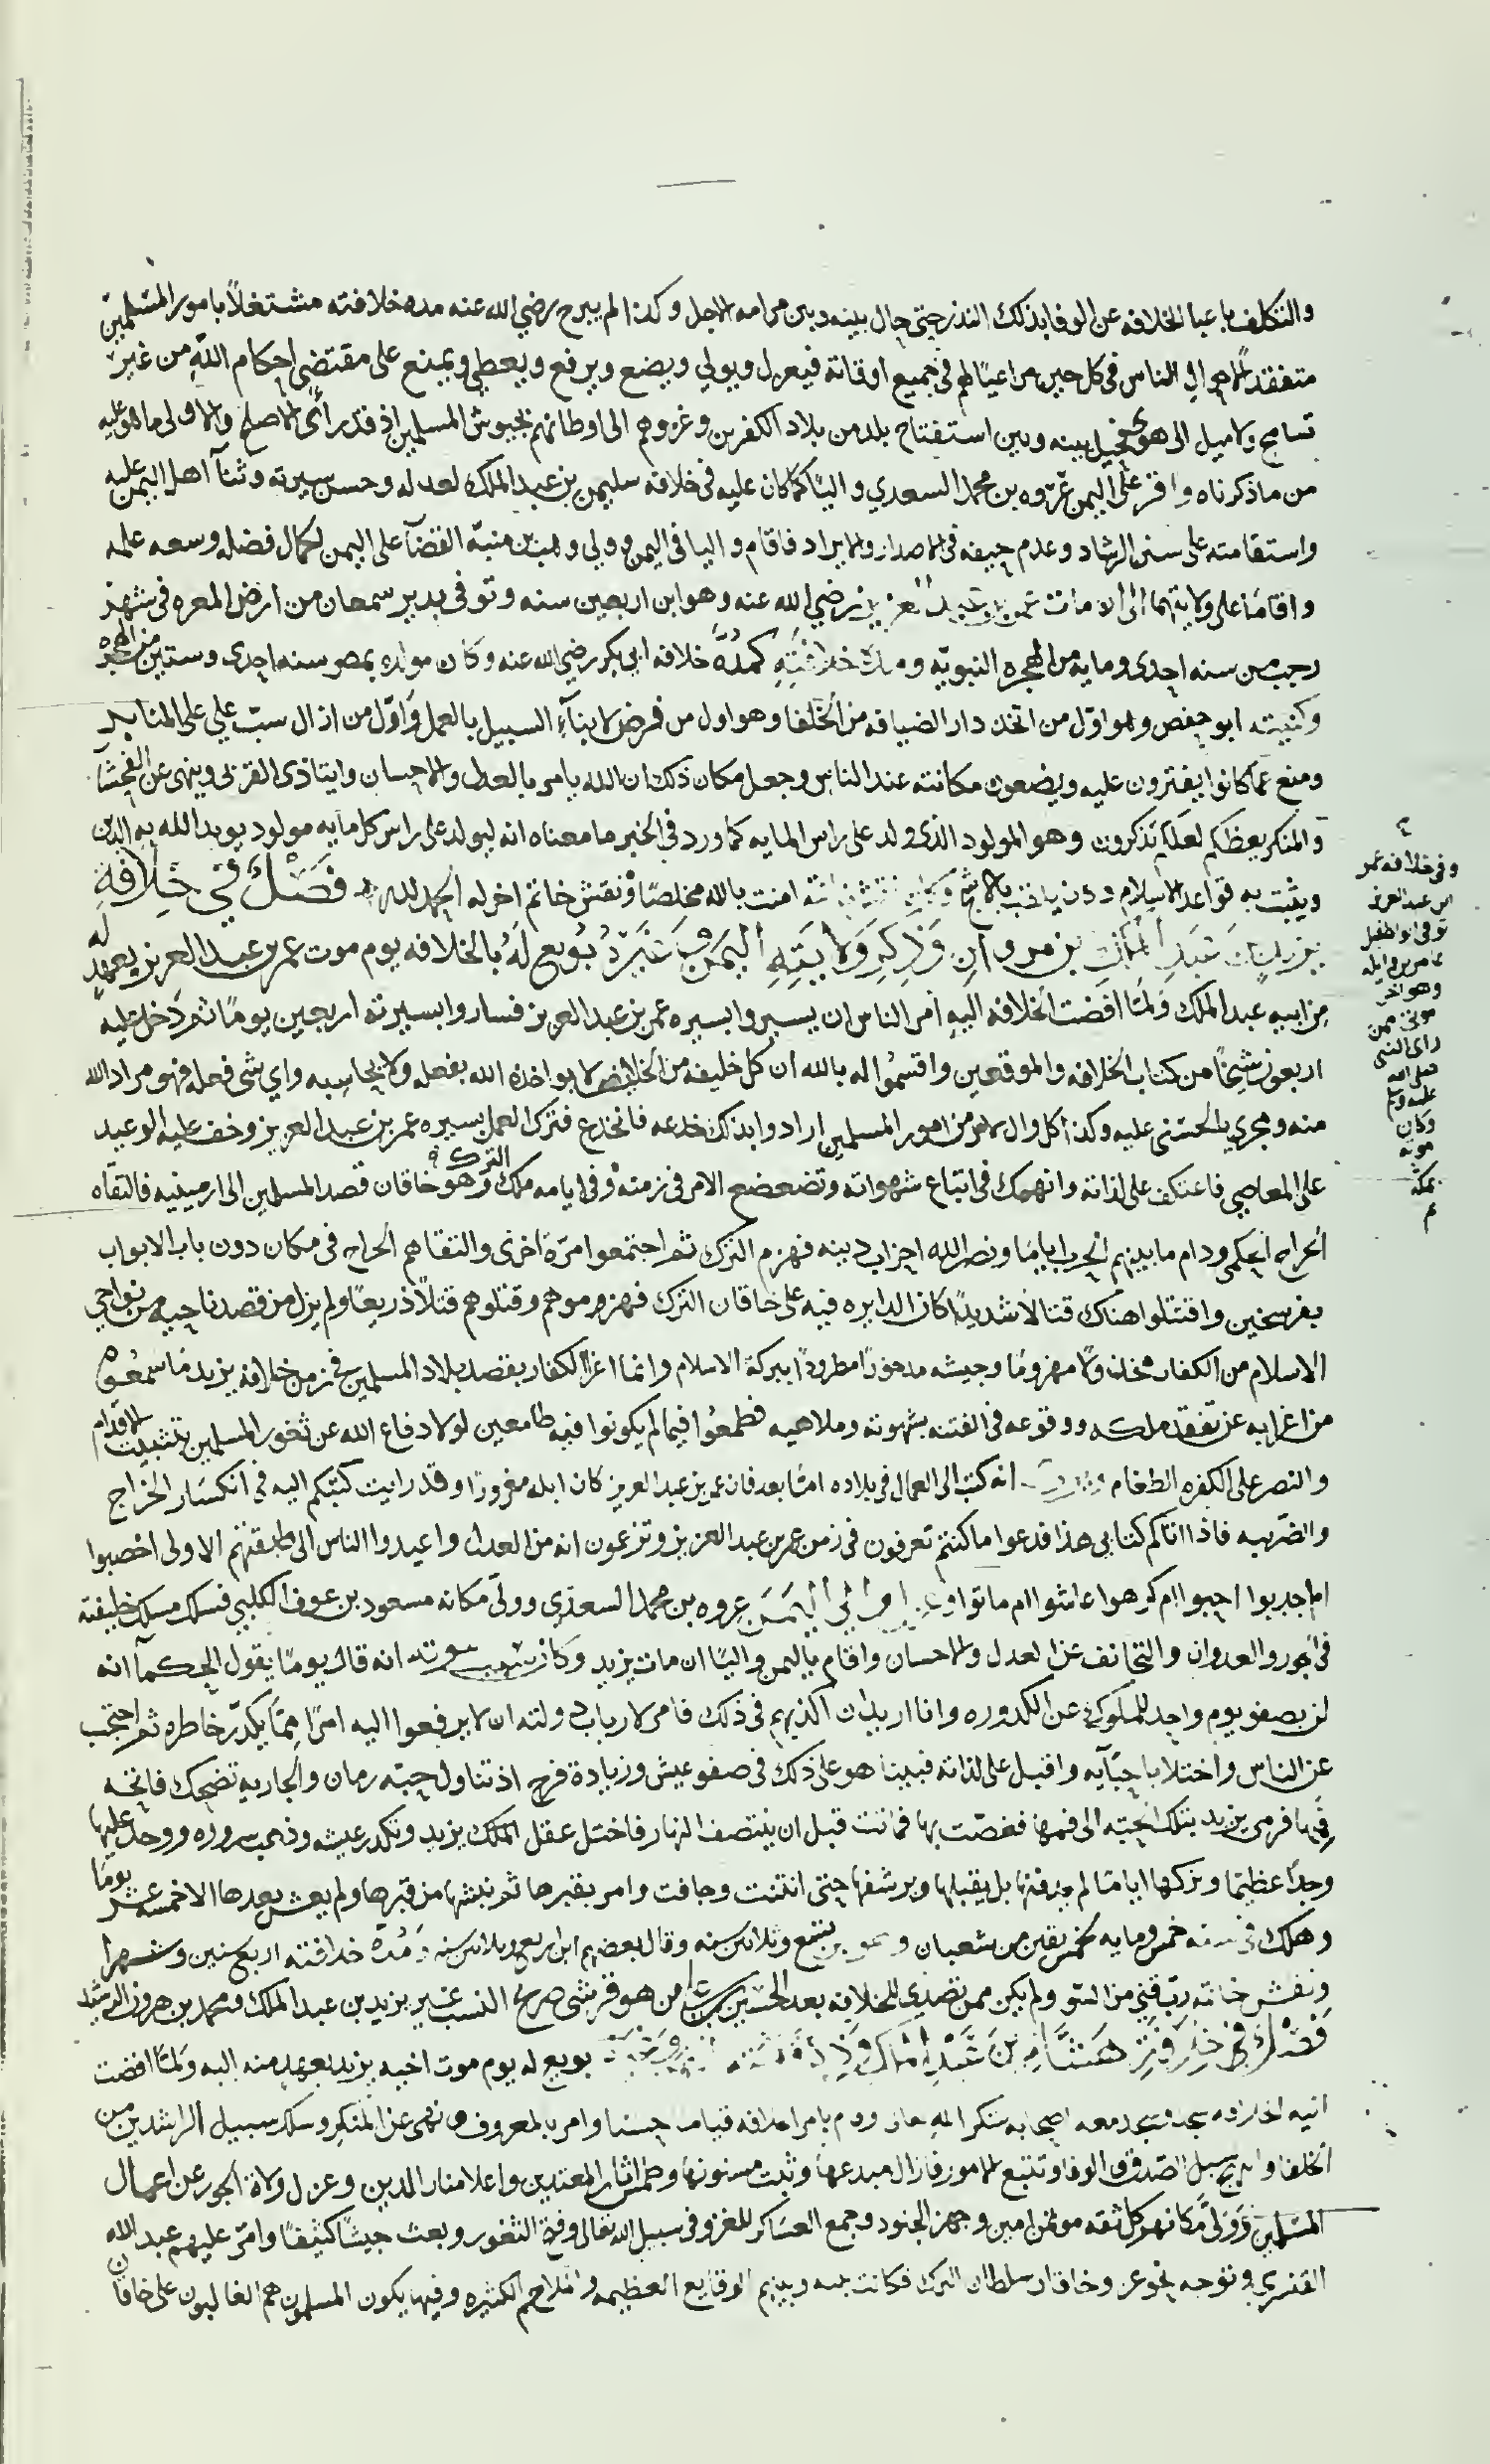 والتكلف باعبا الخلافه عن الوفا بذلك النذر حتى حال بينه وبين مرامه الاجل وكذا لم يبرح رضي الله عنه مده خلافته مشتغلاً بامور المسلمين
متفقد لاحوال الناس في كل حين مراعيًا لهم في جميع اوقاته فيعزل ويولي ويضع ويرفع ويعطي ويمنع على مقتضى احكام الله من غير
تسامح ولا ميل الى هوى بينه وبين استفتاح بلد من بلاد الكفر من وغزوهم الى اوطانهم بجيوش المسلمين اذ قد رأى الاصلح والاولى ما هو عليه
من ما ذكرناه واقر على اليمن عروه بن محمد السعدي واليًا كما كان عليه في خلافه سليمن بن عبد الملك لعدله وحسن سيرته وثنآ اهل اليمن عليه
واستقامته على سنن الرشاد وعدم حيفه في الاصدار والايراد فاقام واليا في اليمن وولي وهب بن منبه القضآ على اليمن لكمال فضله وسعه علمه
واقاما على ولايتهما الى ان مات عمر بن عبد العزيز رضي الله عنه وهو ابن اربعين سنه وتوفى بدير سمعان من ارض المعره في شهر
رجب من سنه احدى ومايه من الهجره النبويه ومدة خلافته كمدة خلافه ابي بكر رضي الله عنه وكان مولده بمصر سنه احدى وستين من الهجره
وكنيته ابو حفص وهو اول من اتخذ دار الضيافه من الخلفا وهو اول من فرض لابنآء السبيل بالعمل واول من ازال سب علي على المنابر
ومنع عما كانوا يفترون عليه ويضعون مكانته عند الناس وجعل مكان ذلك ان الله يامر بالعدل والاحسان وايتا ذى القربى وينهى عن الفحشآ
والمنكر يعظكم لعلكم تذكرون وهو المولود الذي ولد على راس المايه كما ورد في الخبر ما معناه انه ليولد على راس كل مايه مولود يويد الله به الدين
ويثبت به قواعد الاسلام وكان يلقب بالاشج وكان نقش خاتمه امنت بالله مخلصًا ونقش خاتم اخر له الحمد لله فصل في خلافة
يزيد بن عبد الملك بن مروان وذكر ولايته اليمن بويع له بالخلافه يوم موت عمر بن عبد العزيز بعهد له
من ابيه عبد الملك ولما افضت الخلافه اليه امر الناس ان يسيروا بسيره عمر بن عبد العزيز فساروا بسيرته اربعين يومًا ثم دخل عليه
اربعون شيخًا من كتاب الخلافه والموقعين واقسموا له بالله ان كل خليفه من الخلفا لا يواخذه الله بفعله ولا يحاسبه واي شى فعله فهو مراد الله
منه ومجرى بالحسنى عليه وكذا كل وال لامر من امور المسلمين ارادوا بذلك خدعه فانخدع فترك العمل بسيره عمر بن عبد العزيز وخف عليه الوعيد
على المعاصي فاعتكف على لذاته وانهمك في اتباع شهواته وتضعضع الامر في زمته وفي ايامه ملك الترك وهو خاقان قصد المسلمين الى ارمينيه فالتقاه
الجراح الحكمي ودام ما بينهم الحرب اياما ونصر الله احزاب دينه فهزم الترك ثم اجتمعوا مرة اخرى والتقاهم الجراح في مكان دون باب الابواب
بفرسخين واقتتلوا هناك قتالا شديدًا كان الدايره فيه على خاقان الترك فهزموهم وقتلوهم قتلاً ذريعًا ولم يزل من قصد ناحيه من نواحي
الاسلام من الكفار مخذولا مهزومًا وجيشه مدحورًا مطرودًا ببركة الاسلام وانما اغرا الكفار بقصد بلاد المسلمين في زمن خلافه يزيد ما سمعوه
من اغرابه عن تفقد ملكه ووقوعه في الفتنه بشهوته وملاهيه فطمعوا فيما لم يكونوا فيه طامعين لولا دفاع الله عن ثغور المسلمين بتثبيت الاقدام
والنصر على الكفره الطغام انه كتب الى العمال في بلاده اما بعد فان عمر بن عبد العزيز كان ابله مغرورًا وقد رايت كتبكم اليه في انكسار الخراج
والضريبه فاذا اتاكم كتابي هذا فدعوا ما كنتم تعرفون في زمن عمر بن عبد العزيز وتزعمون انه من العدل واعيدوا الناس الى طبقتهم الاولى اخصبوا
ام اجدبوا احبوا ام كرهوا عاشوا ام ماتوا اليمن عروه بن محمد السعدي وولى مكانه مسعود بن عوف الكلبي فسلك مسلك خليفته
في الجور والعدوان والتجانف عن العدل والاحسان واقام باليمن واليًا ان مات يزيد وكان سبب موته انه قال يومًا يقول الحكمآ انه
لن يصفو يوم واحد للملوك عن الكدوره وانا اريد ان اكذبهم في ذلك فامر لارباب دولته ان لا يرفعوا اليه امرًا مما يكدر خاطره ثم احتجب
عن الناس واختلا باحبآيه واقبل على لذاته فبينا هو على ذلك في صفو عيش وزيادة فرح اذ تناول حبه رمان والجاريه تضحك فاتحه
فمها فرمى يزيد بتلك الحبه الى فمها فغصت بها فماتت قبل ان ينتصف النهار فاختل عقل الملك يزيد وتكدر عيشه وذهب سروره ووجد عليها
وجدًا عظيمًا وتركها اياما لم يدفنها بل يقبلها ويرشفها حتى انتنت وجافت وامر بقبرها ثم نبشها من قبرها ولم يعش بعدها الا خمسه عشر يومًا
وهلك في سنه خمس ومايه لخمس بقين من شعبان وهو بن تسع وثلاثين سنه وقال بعضهم ابن اربع وثلاثين سنه ومدة خلافته اربع سنين وشهرا
ونقش خاتمه رب قني من السو ولم يكن ممن تصدى للخلافه بعد الحسين من هو قرشى صريح النسب غير يزيد بن عبد الملك ومحمد بن هرون الرشيد
فصل في هشام بن عبد الملك بويع له يوم موت اخيه يزيد بعهد منه اليه ولما افضت
اليه الخلافه سجد وسجد معه اصحابه شكرا لله وقام بامر الخلافه قياما حسنا وامر بالمعروف ونهى عن المنكر وسلك سبيل الراشدين من
الخلفا وانتهج سبيل الصدق والوفا وتتبع الامور فازال مبدعها وثبت مسنونها وطمس اثار المعتدين واعلا منار الدين وعزل ولاة الجور عن اعمال
المسلمين وولى مكانهم كل ثقه موتمن امين وجهز الجنود وجمع العساكر للغزو في سبيل الله تعالى وفتح الثغور وبعث جيشًا كثيفًا وامر عليهم عبد الله
القسري وتوجه نحو وخاقان سلطان الترك فكانت بينه وبينهم الوقايع العظيمه والملاحم الكثيره وفيها يكون المسلمون هم الغالبون على خاقان
وفي خلافه عمر
ابن عبد العزيز
توفي ابو الطفيل
عامر بن واثله
وهو اخر
موتى ممن
راى النبي
صلى الله
عليه وسلم
وكان
موته
بمكه
م